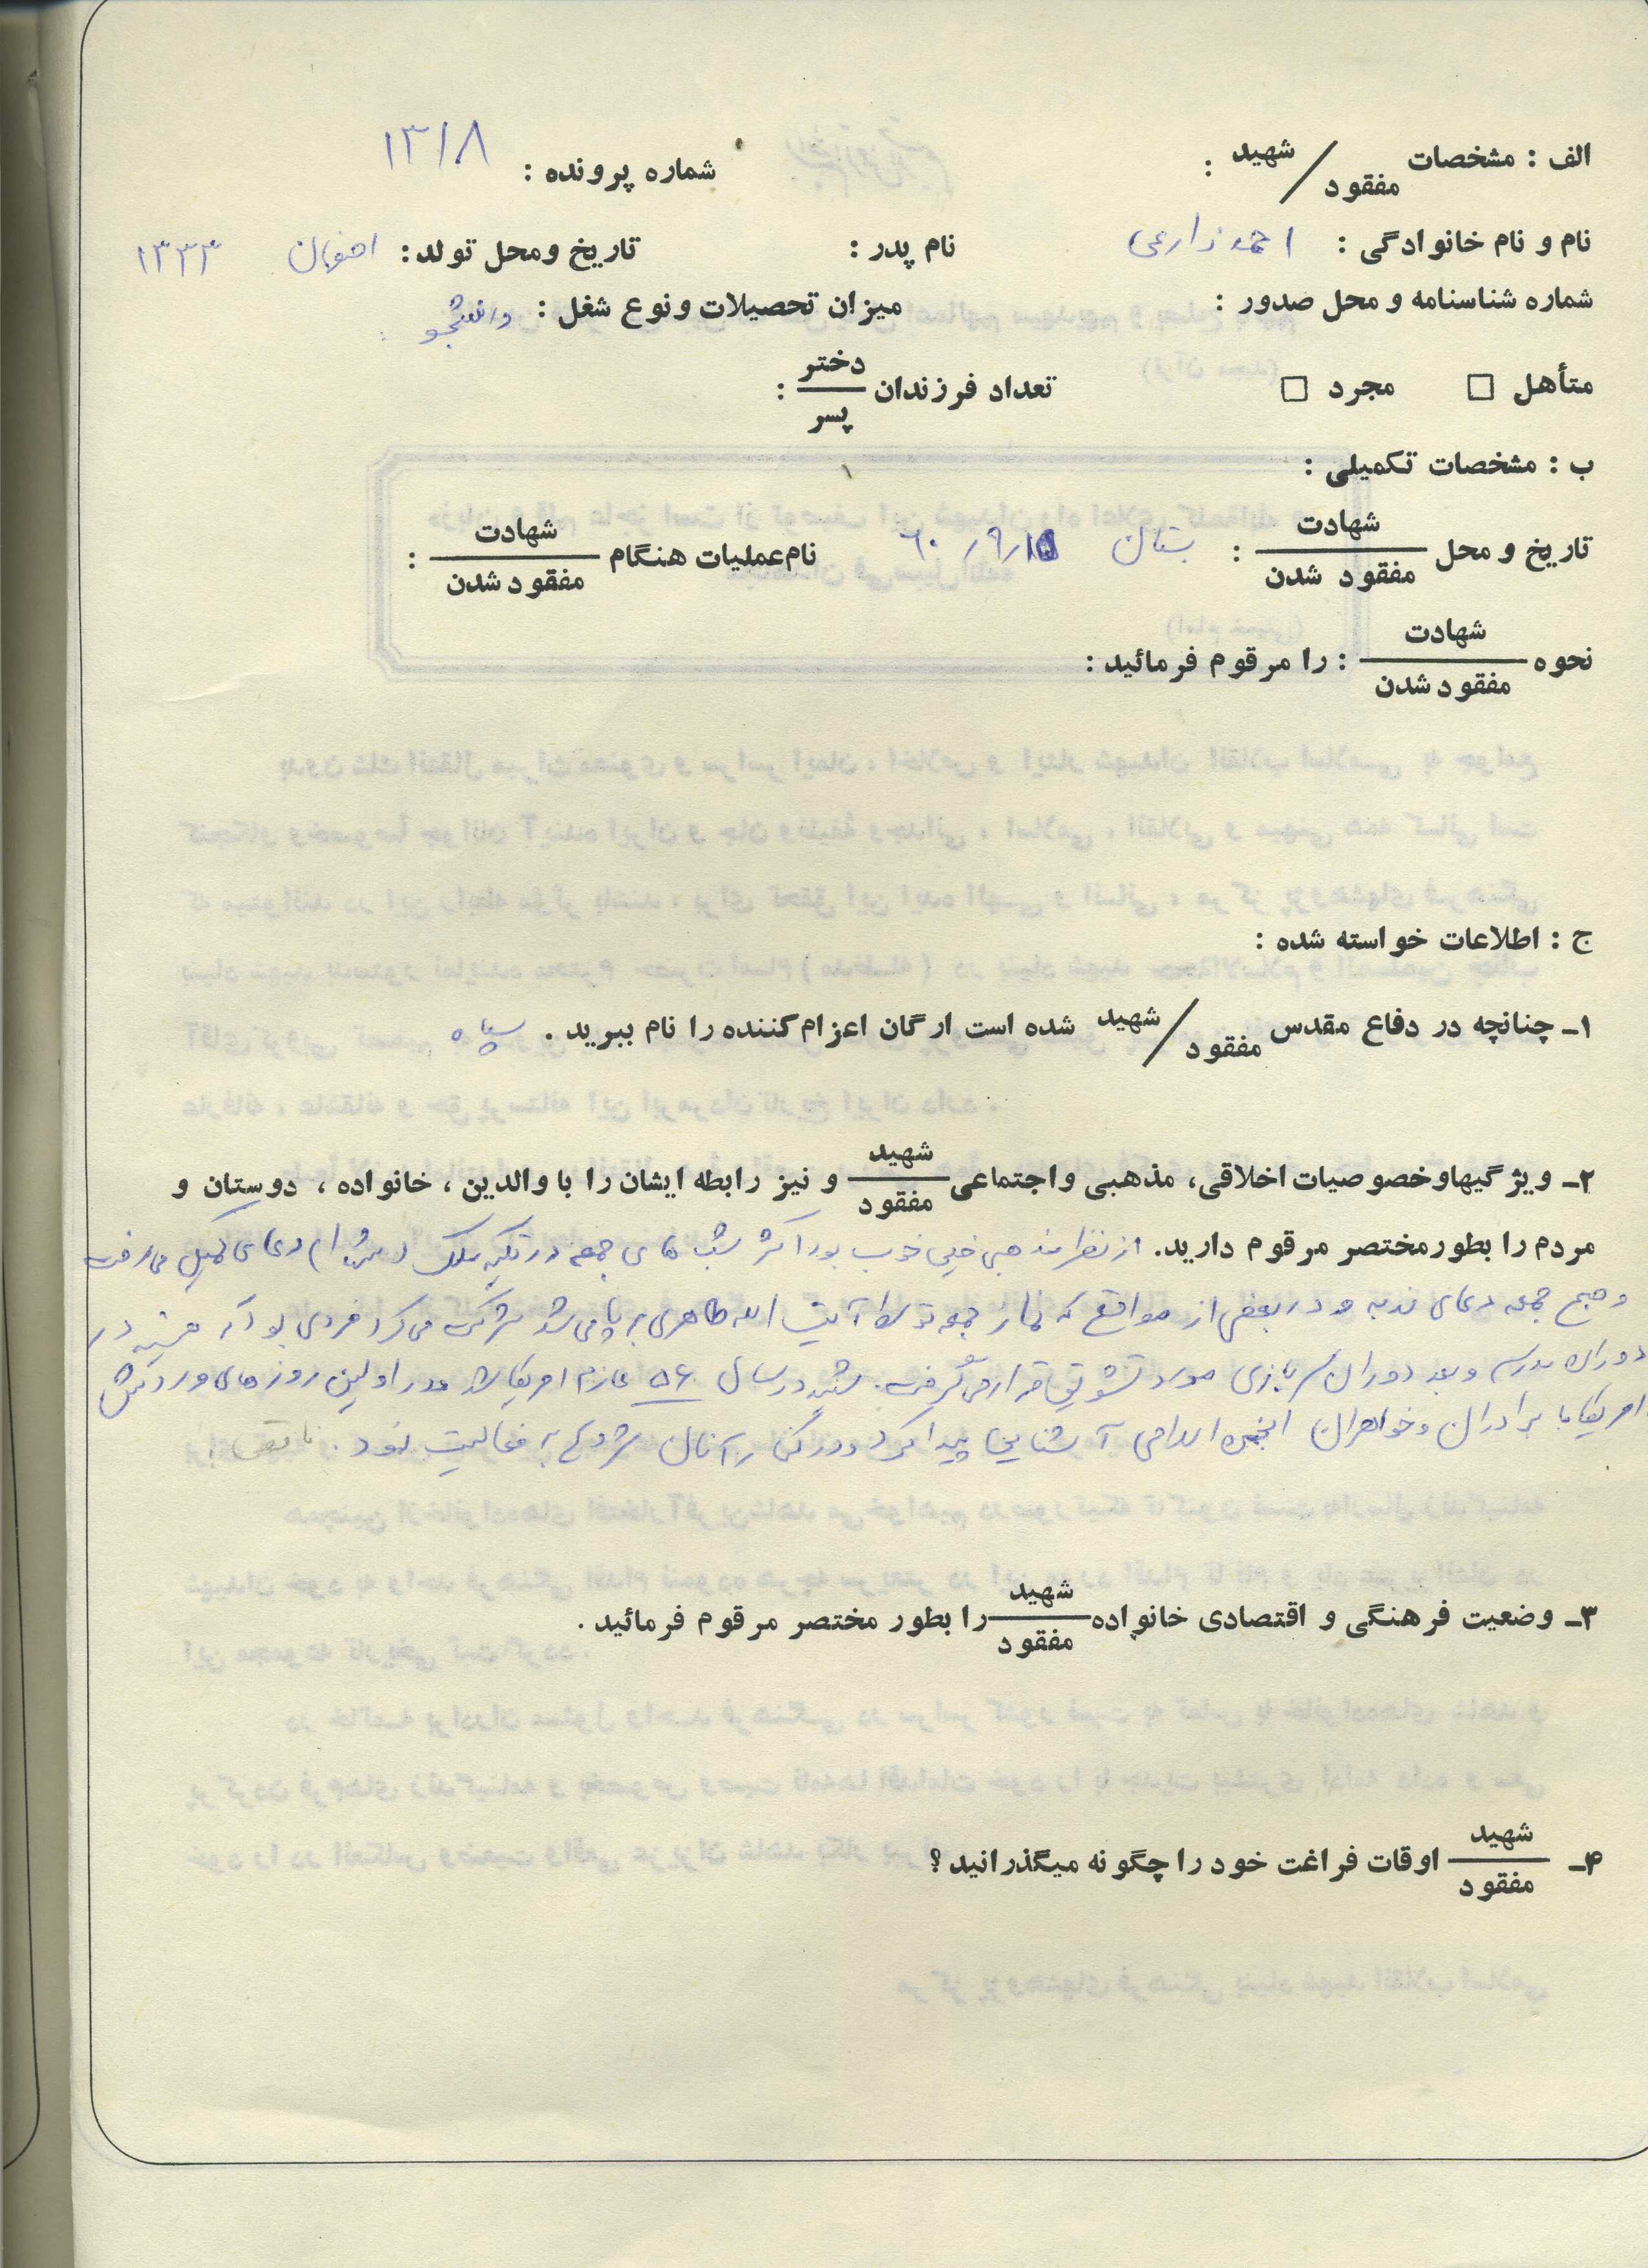 الف : مشخصات شهید / مفقود :
شماره پرونده : ۱۳۱۸
نام و نام خانوادگی : احمد زارعی
نام پدر :
تاریخ ومحل تولد : اصفهان ۱۳۳۳
شماره شناسنامه و محل صدور :
میزان تحصیلات ونوع شغل : دانشجو
متأهل □ مجرد □
تعداد فرزندان دختر / پسر :
ب : مشخصات تکمیلی :
تاریخ و محل شهادت / مفقود شدن : بستان ۶۰/۹/
نام عملیات هنگام شهادت / مفقود شدن :
نحوه شهادت / مفقود شدن : را مرقوم فرمائید :
ج : اطلاعات خواسته شده :
۱ـ چنانچه در دفاع مقدس شهید / مفقود شده است ارگان اعزام کننده را نام ببرید . سپاه
۲ـ ویژگیهاوخصوصیات اخلاقی، مذهبی واجتماعی شهید / مفقود و نیز رابطه ایشان را با والدین ، خانواده ، دوستان و
مردم را بطورمختصر مرقوم دارید. از نظر مذهبی خیلی خوب بود اکثر شب های جمعه در تکیه ملک دعای کمیل می رفت
و صبح جمعه دعای ندبه و در بعضی از مواقع که نماز جمعه توسط آیت الله طاهری بر پا می شد شرکت می کرد فردی بود که همیشه در
دوران مدرسه و بعد دوران سربازی مورد تشویق قرار می گرفت. شهید در سال ۵۶ عازم امریکا شد و در اولین روزهای ورودش
امریکا با برادران و خواهران انجمن اسلامی آشنایی پیدا کرد و در کنار آنان شروع به فعالیت نمود.
۳ـ وضعیت فرهنگی و اقتصادی خانواده شهید / مفقود را بطور مختصر مرقوم فرمائید .
۴ـ شهید / مفقود اوقات فراغت خود را چگونه میگذرانید ؟